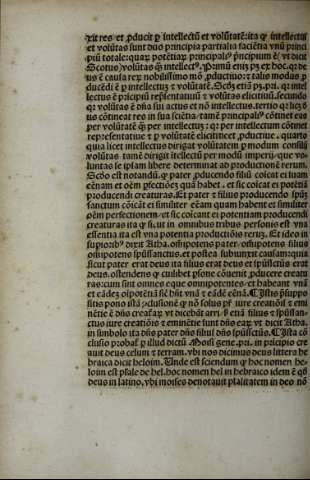 xit res et ꝓducit ꝑ intellectũ et volũtatẽ: ita ꝙ intellectus
et volũtas sunt duo principia partialia faciẽtia vnũ princi
piũ totale: quaꝝ potẽtiaꝝ principalꝰ pͥncipium ẽ (vt dicit
Scotus) volũtas ꝗ̃ intellectꝰ. Primũ eniꝫ pꝫ ex hoc. qꝛ de
us ẽ causa reꝝ nobilissimo mõ ꝓductiuo: ⁊ talis modus ꝓ
ducẽdi ẽ ꝑ intellectuꝫ ⁊ volũtatẽ. Scďs etiã pꝫ. pꝛi. qꝛ intel
lectus ẽ pͥncipiũ repͥsentatiuũ ⁊ volũtas elicitiuũ. secundo
qꝛ volũtas ẽ dña sui actus et nõ intellectus. tertio qꝛ licꝫ ď
us cõtineat res in sua sciẽtia. tamẽ principalꝰ cõtinet eas
per volũtatẽ ꝗ̃ per intellectuꝫ: qꝛ per intellectum cõtinet
repͥsentatiue ⁊ ꝑ volũtatẽ elicitiue et ꝓductiue. quarto
quia licet intellectus dirigat volũtatem ꝑ modum consilij
volũtas tamẽ dirigit ītellectũ per modũ imperij: que vo
luntas se ipsam libere determinat ad productionẽ rerum.
Scďo est notandũ. ꝙ pater ꝓducendo filiũ cõicat ei suam
eẽntiam et oẽm ꝑfectiõeꝫ quã habet. et sic cõicat ei potẽtiã
producendi creaturas. Et pater ⁊ filius producendo spūꝫ
sanctum cõicãt ei similiter eẽtiam quam habent et similiter
oẽm perfectionem. et sic cõicant ei potentiam producendi
creaturas ita ꝙ sicut in omnibus tribus personis est vna
essentia ita est vna potentia productiõis reruꝫ. Et ideo in
supioribꝰ dixit Atha. oĩpotens pater: oĩpotens filius
oĩpotens spūssanctus. et postea subiunxit causam: quia
sicut pater erat deus ita filius erat deus et spūssctũs erat
deus. ostendens ꝙ cuilibet ꝑsone cõuenit ꝓducere creatu
ras: cum sint omnes eque omnipotentes et habeant vnã
et eãdeꝫ oĩpotẽtiã sic hñt vnã ⁊ eãdẽ eẽnã. Istis psuppo
sitis pono istã ɔclusionẽ ꝙ nõ solus pͬ iure creatiõis ⁊ emi
nẽtie ẽ dñs creaťaꝝ vt dicebãt arri. sꝫ etiã filius ⁊ spūssan
ctus iure creatiõis ⁊ eminẽtie sunt dñs eaꝝ vt dicit Atha.
in simbolo ita dñs pater dñs filius dñs spūssctũs. Ista cõ
clusio probatͬ ꝑ illud dictũ Moisi gene. pri. in pͥncipio cre
auit deus celum ⁊ terram. vbi nos dicimus deus littera he
braica dicit heloim. Unde est sciendum ꝙ hoc nomen he
loim est plale de hel. hoc nomen hel in hebraico idem ẽ ꝙ
deus in latino. vbi moises denotauit plalitatem in deo nõ